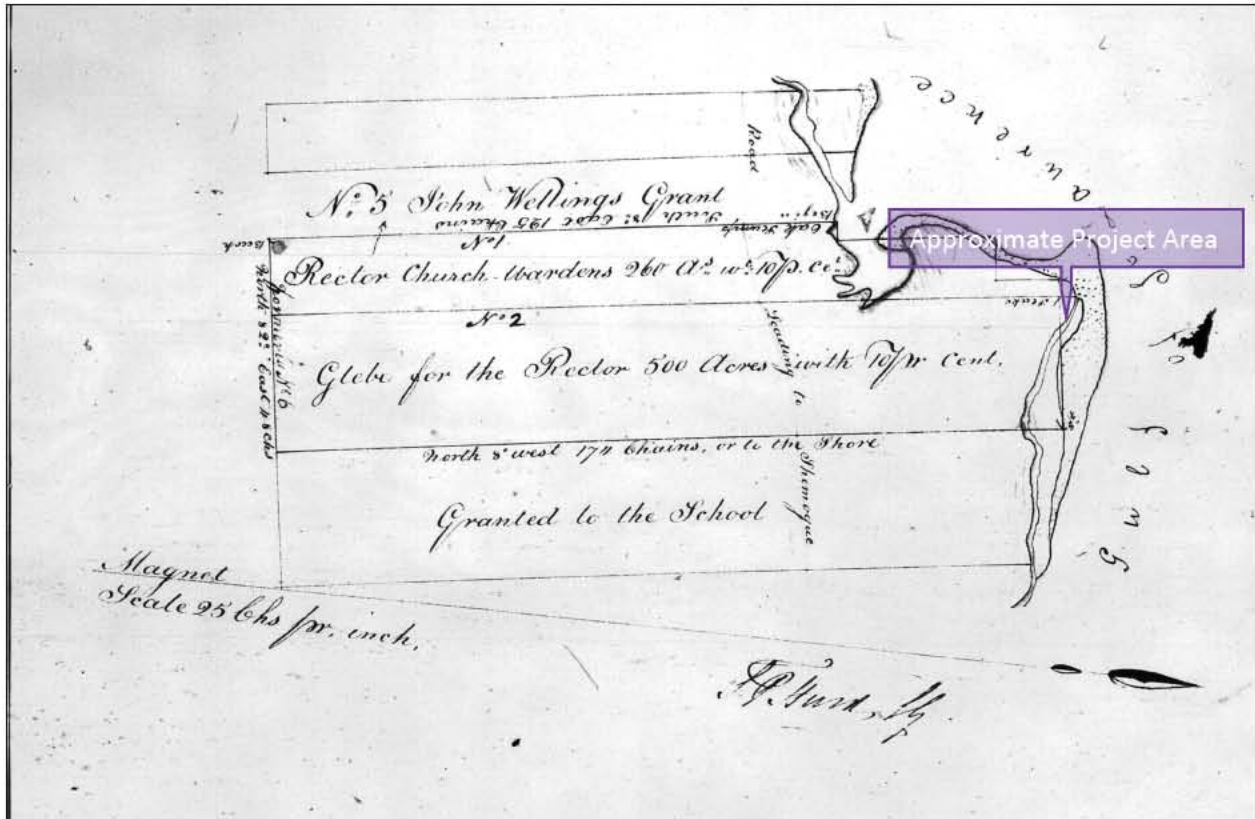 Road
Gulf of S Laurence
No. 5 John Wellings Grant
South 8° East 125 Chains
Oak Stump
Begin
Approximate Project Area
Birch
No. 1
Rector Church Wardens 260 As. wt. 10/p. cent.
Stake
No. 2
Glebe for the Rector 500 Acres with 10/pr cent.
North 82° East 48 chs
Leading to Shemogue
North 8° west 174 Chains, or to the Shore
Granted to the School
Magnet
Scale 25 Chs pr. inch.